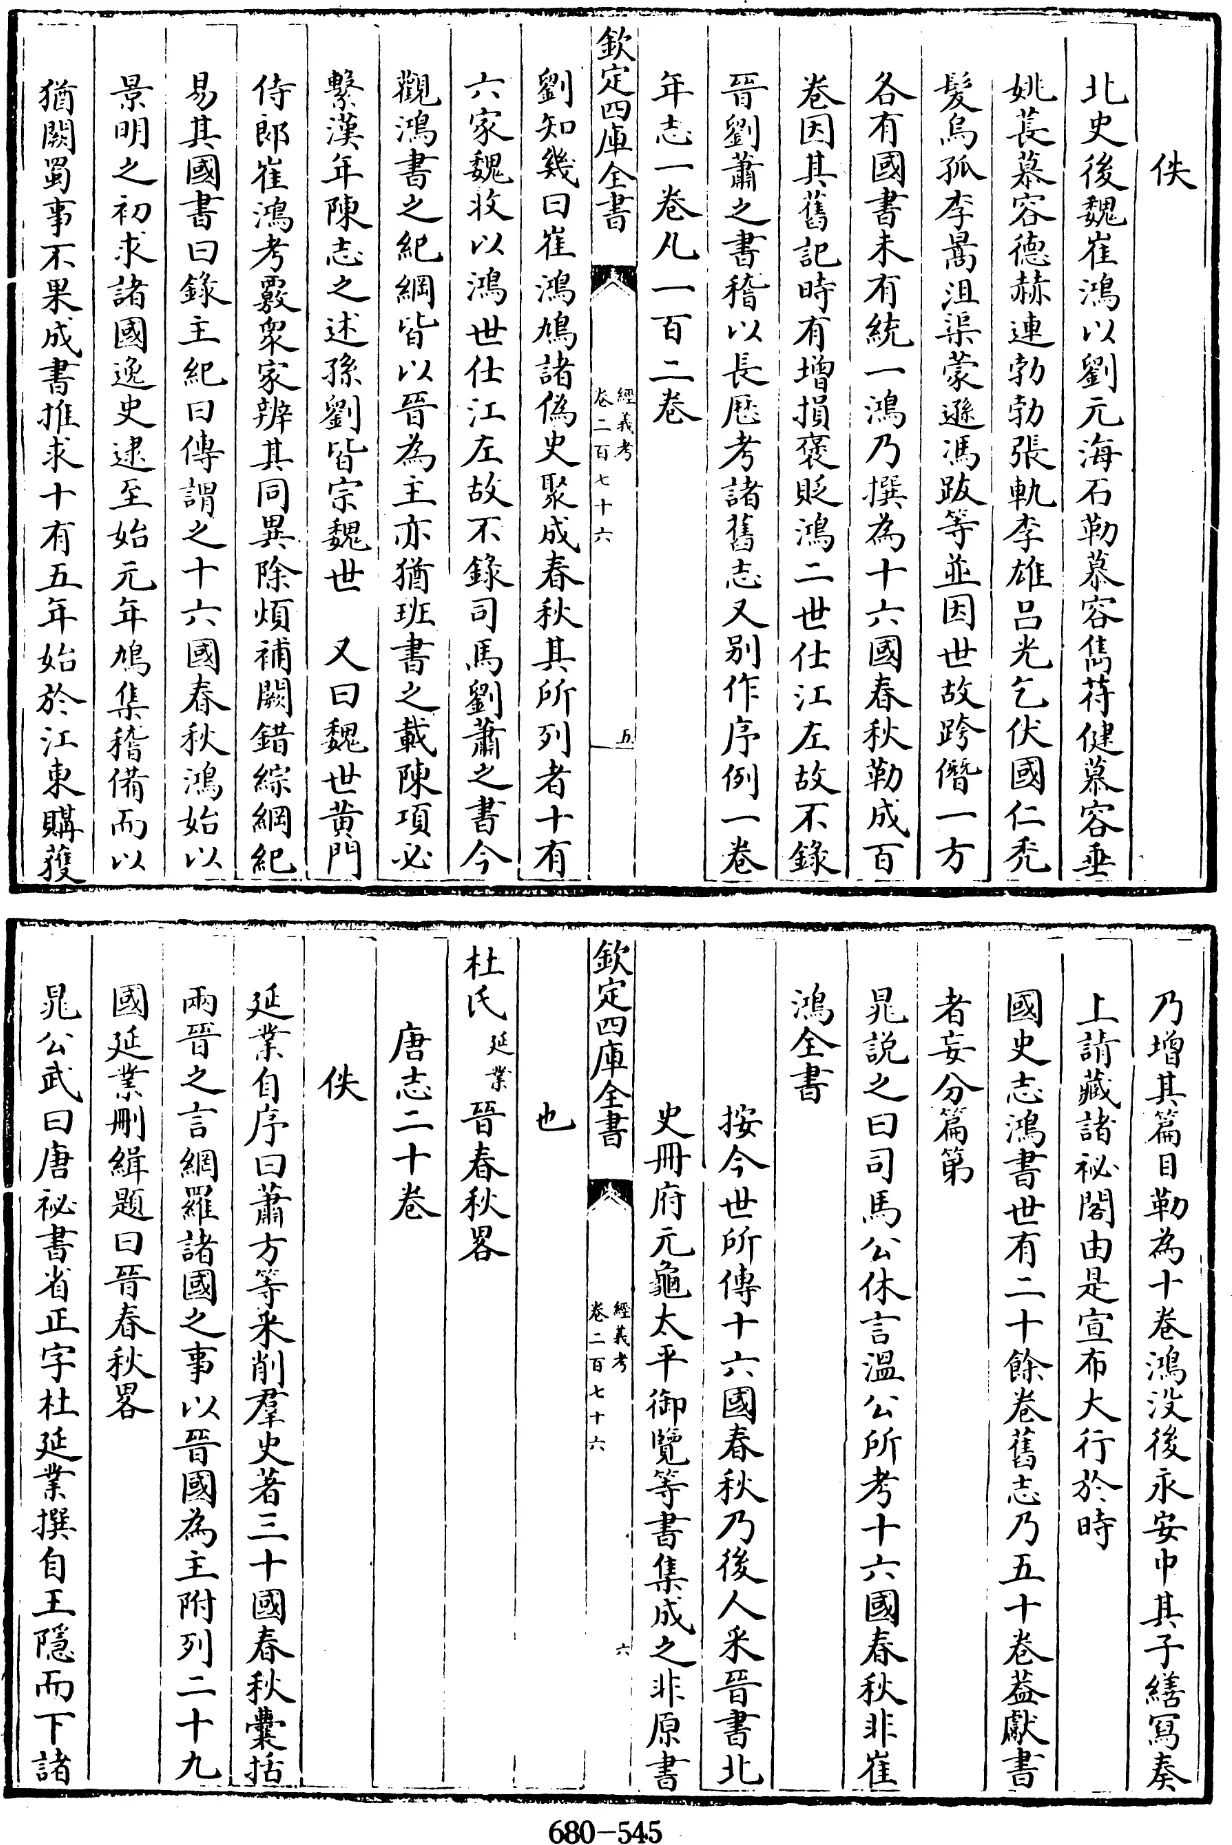 佚
北史後魏崔鴻以劉元海石勒慕容儁苻健慕容垂
姚萇慕容德赫連勃勃張軌李雄呂光乞伏國仁秃
髮烏孤李暠沮渠蒙遜馮跋等並因世故跨僭一方
各有國書未有統一鴻乃撰為十六國春秋勒成百
卷因其舊記時有增損褒貶鴻二世仕江左故不錄
晉劉蕭之書稽以長厯考諸舊志又别作序例一卷
年志一卷凡一百二卷
欽定四庫全書
經義考
卷二百七十六
五
劉知幾曰崔鴻鳩諸偽史聚成春秋其所列者十有
六家魏收以鴻世仕江左故不錄司馬劉蕭之書今
觀鴻書之紀綱皆以晉為主亦猶班書之載陳項必
繫漢年陳志之述孫劉皆宗魏世　又曰魏世黄門
侍郎崔鴻考覈衆家辨其同異除煩補闕錯綜綱紀
易其國書曰錄主紀曰傳謂之十六國春秋鴻始以
景明之初求諸國逸史逮至始元年鳩集稽備而以
猶闕蜀事不果成書推求十有五年始於江東購獲
乃增其篇目勒為十卷鴻没後永安中其子繕寫奏
上請藏諸祕閣由是宣布大行於時
國史志鴻書世有二十餘卷舊志乃五十卷葢獻書
者妄分篇第
晁說之曰司馬公休言溫公所考十六國春秋非崔
鴻全書
按今世所傳十六國春秋乃後人采晉書北
史冊府元龜太平御覽等書集成之非原書
欽定四庫全書
經義考
卷二百七十六
六
也
杜氏延業晉春秋畧
唐志二十卷
佚
延業自序曰蕭方等采削羣史著三十國春秋囊括
兩晉之言網羅諸國之事以晉國為主附列二十九
國延業刪緝題曰晉春秋畧
晁公武曰唐祕書省正字杜延業撰自王隱而下諸
680-545